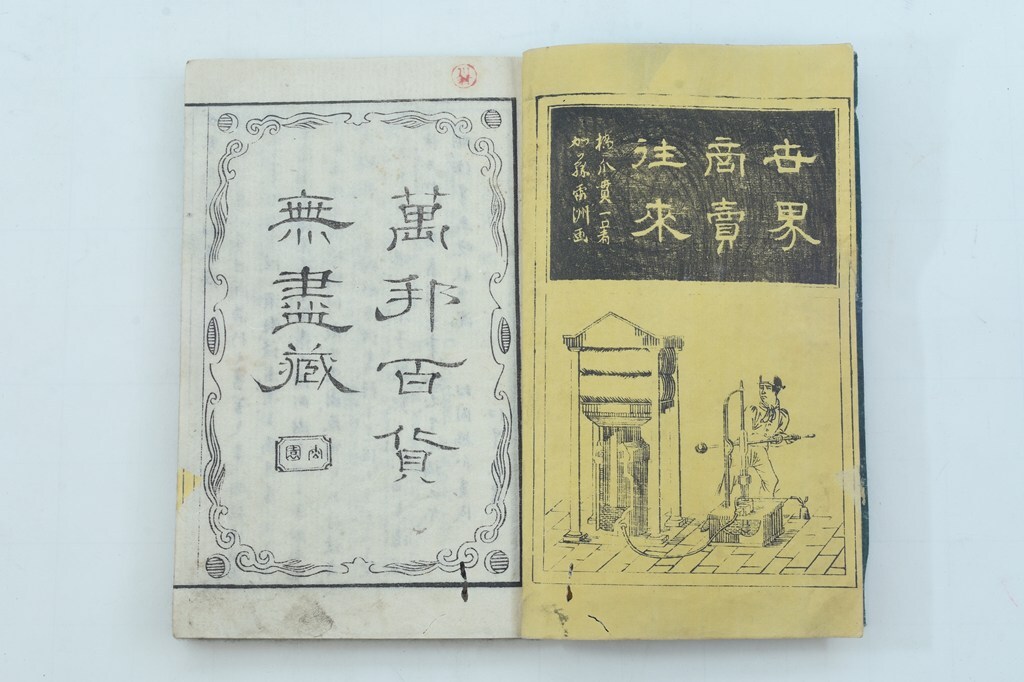 世界
商賣
往來
橋爪貫一著
加藤雷洲画
萬邦百貨
無盡藏